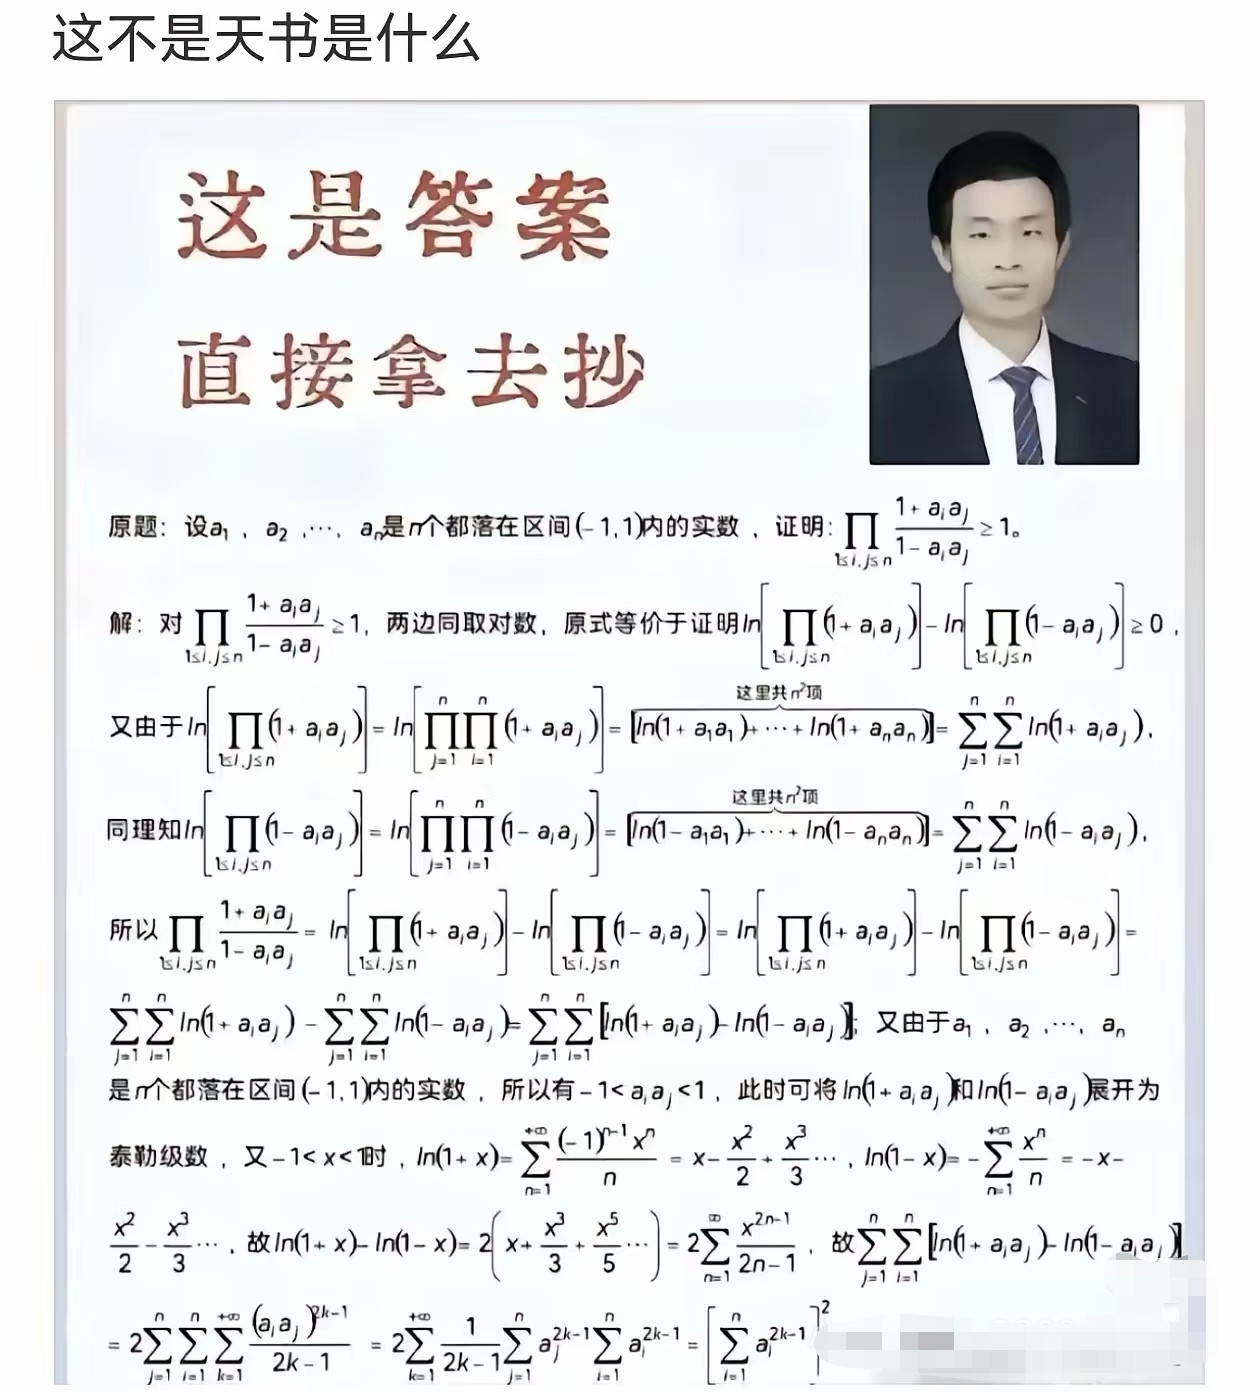 这不是天书是什么
这是答案
直接拿去抄
原题：设a₁，a₂，…，aₙ是n个都落在区间(-1,1)内的实数，证明：∏_{1≤i,j≤n} (1+aᵢaⱼ)/(1-aᵢaⱼ) ≥1。
解：对∏_{1≤i,j≤n} (1+aᵢaⱼ)/(1-aᵢaⱼ) ≥1，两边同取对数，原式等价于证明ln[∏_{1≤i,j≤n}(1+aᵢaⱼ)]-ln[∏_{1≤i,j≤n}(1-aᵢaⱼ)]≥0，
这里共n²项
又由于ln[∏_{1≤i,j≤n}(1+aᵢaⱼ)]=ln[∏_{j=1}^{n}∏_{i=1}^{n}(1+aᵢaⱼ)]=[ln(1+a₁a₁)+…+ln(1+aₙaₙ)]=∑_{j=1}^{n}∑_{i=1}^{n}ln(1+aᵢaⱼ)，
这里共n²项
同理知ln[∏_{1≤i,j≤n}(1-aᵢaⱼ)]=ln[∏_{j=1}^{n}∏_{i=1}^{n}(1-aᵢaⱼ)]=[ln(1-a₁a₁)+…+ln(1-aₙaₙ)]=∑_{j=1}^{n}∑_{i=1}^{n}ln(1-aᵢaⱼ)，
所以∏_{1≤i,j≤n} (1+aᵢaⱼ)/(1-aᵢaⱼ)=ln[∏_{1≤i,j≤n}(1+aᵢaⱼ)]-ln[∏_{1≤i,j≤n}(1-aᵢaⱼ)]=ln[∏_{1≤i,j≤n}(1+aᵢaⱼ)]-ln[∏_{1≤i,j≤n}(1-aᵢaⱼ)]=
∑_{j=1}^{n}∑_{i=1}^{n}ln(1+aᵢaⱼ)-∑_{j=1}^{n}∑_{i=1}^{n}ln(1-aᵢaⱼ)=∑_{j=1}^{n}∑_{i=1}^{n}[ln(1+aᵢaⱼ)-ln(1-aᵢaⱼ)]；又由于a₁，a₂，…，aₙ
是n个都落在区间(-1,1)内的实数，所以有-1<aᵢaⱼ<1，此时可将ln(1+aᵢaⱼ)和ln(1-aᵢaⱼ)展开为
泰勒级数，又-1<x<1时，ln(1+x)=∑_{n=1}^{+∞} (-1)^{n-1}xⁿ/n = x-x²/2+x³/3…，ln(1-x)=-∑_{n=1}^{+∞} xⁿ/n =-x-
x²/2-x³/3…，故ln(1+x)-ln(1-x)=2(x+x³/3+x⁵/5…)=2∑_{n=1}^{∞} x^{2n-1}/(2n-1)，故∑_{j=1}^{n}∑_{i=1}^{n}[ln(1+aᵢaⱼ)-ln(1-aᵢaⱼ)]
=2∑_{j=1}^{n}∑_{i=1}^{n}∑_{k=1}^{+∞} (aᵢaⱼ)^{2k-1}/(2k-1) =2∑_{k=1}^{+∞} 1/(2k-1) ∑_{j=1}^{n}aⱼ^{2k-1}∑_{i=1}^{n}aᵢ^{2k-1}=[∑_{i=1}^{n}aᵢ^{2k-1}]²